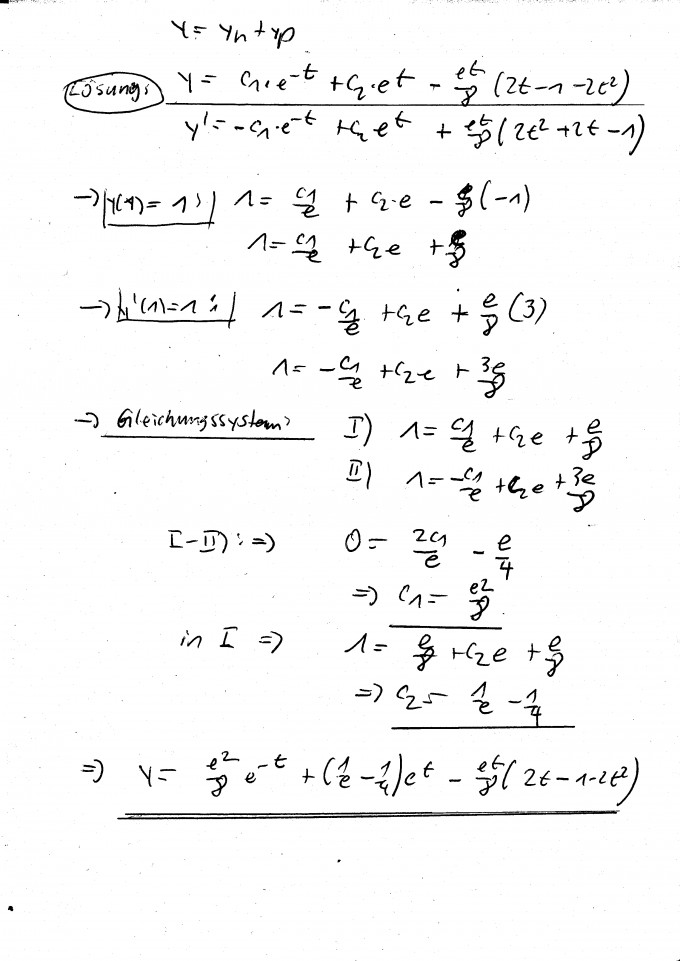 y = yh + yp
Lösung: y = c₁·e^-t + c₂·e^t - e^t/8 (2t-1-2t²)
y' = -c₁·e^-t + c₂ e^t + e^t/8 (2t²+2t-1)
→ y(1) = 1: 1 = c₁/e + c₂·e - e/8 (-1)
1 = c₁/e + c₂e + e/8
→ y'(1) = 1: 1 = -c₁/e + c₂e + e/8 (3)
1 = -c₁/e + c₂·e + 3e/8
→ Gleichungssystem: I) 1 = c₁/e + c₂e + e/8
II) 1 = -c₁/e + c₂e + 3e/8
I-II): ⇒ 0 = 2c₁/e - e/4
⇒ c₁ = e²/8
in I ⇒ 1 = e/8 + c₂e + e/8
⇒ c₂ = 1/e - 1/4
⇒ y = e²/8 e^-t + (1/e - 1/4)e^t - e^t/8 (2t-1-2t²)